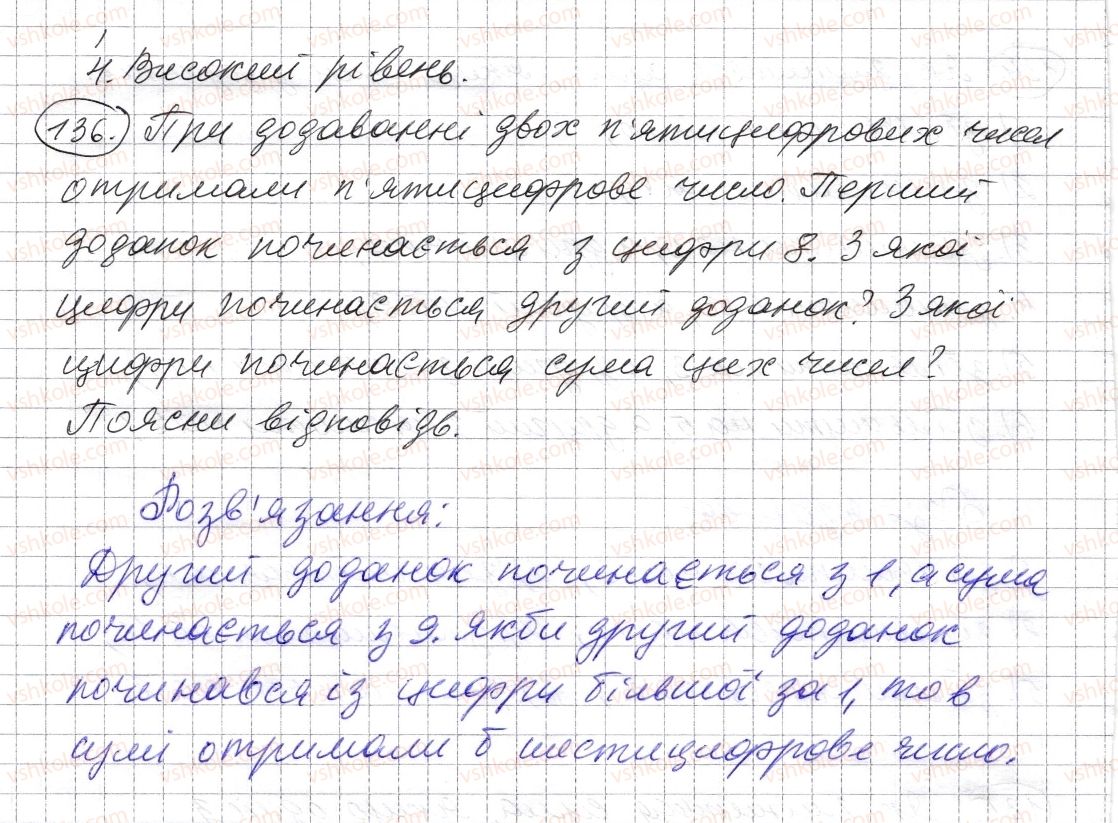 4. Високий рівень.
136. При додаванні двох п'ятицифрових чисел
отримали п'ятицифрове число. Перший
доданок починається з цифри 8. З якої
цифри починається другий доданок? З якої
цифри починається сума цих чисел?
Поясни відповідь.
Розв'язання:
Другий доданок починається з 1, а сума
починається з 9. Якби другий доданок
починався із цифри більшої за 1, то в
сумі отримали б шестицифрове число.